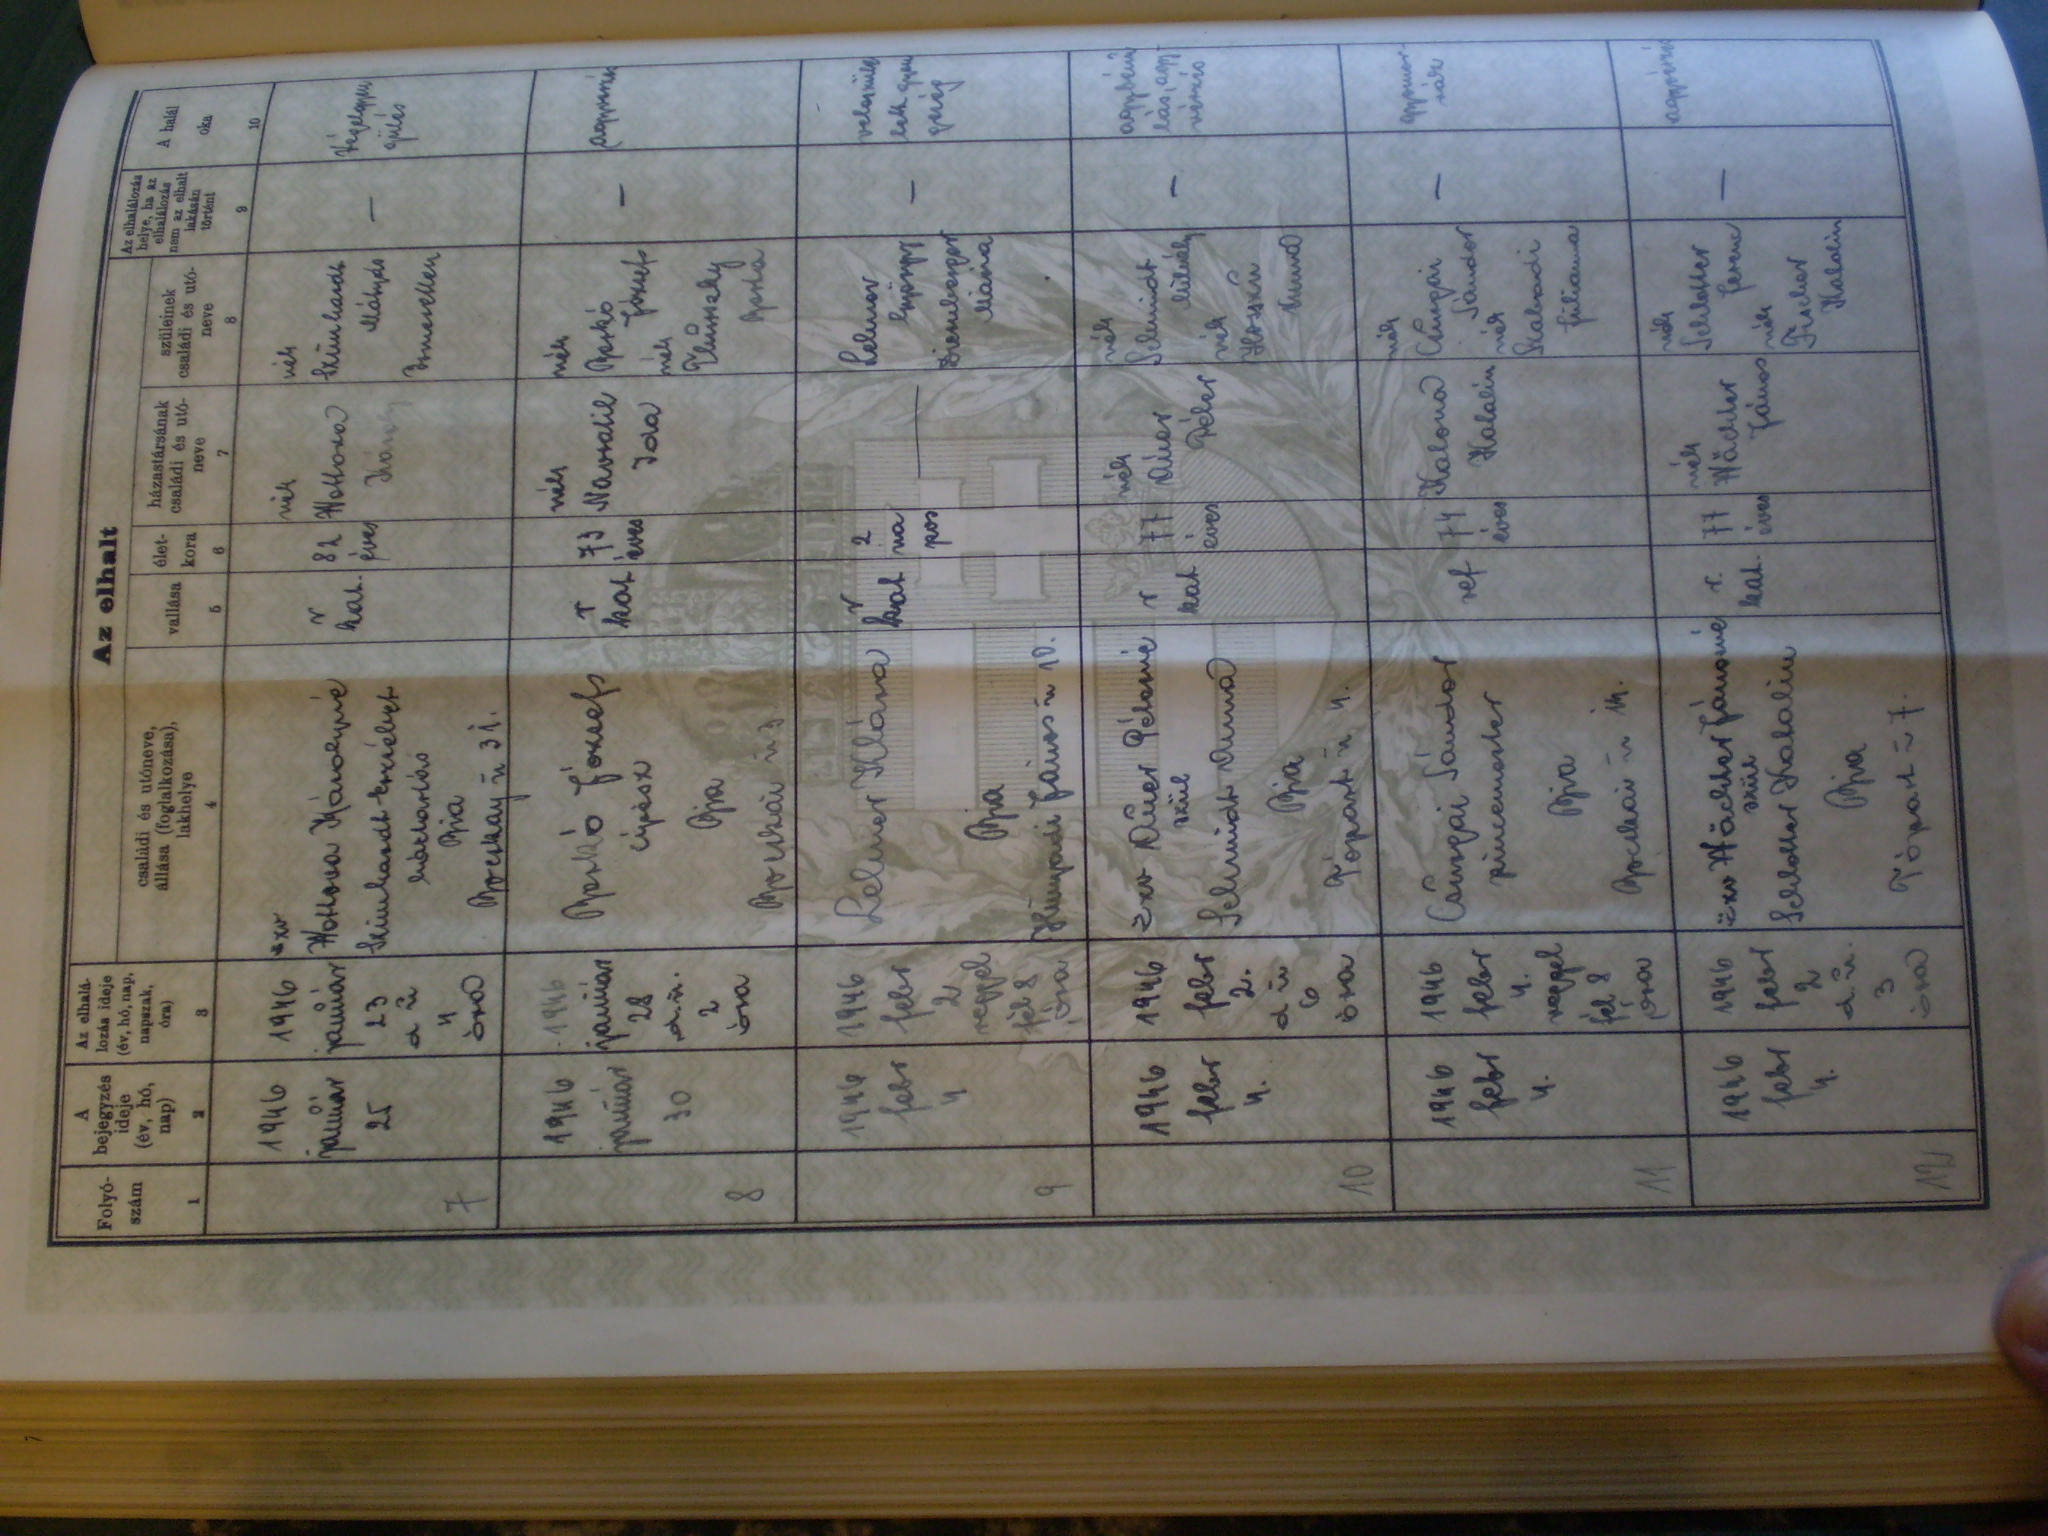 Az elhalt
Folyó-
szám
1
A
bejegyzés
ideje
(év, hó,
nap)
2
Az elhalá-
lozás ideje
(év, hó, nap,
napszak,
óra)
3
családi és utóneve,
állása (foglalkozása),
lakhelye
4
vallása
5
élet-
kora
6
házastársának
családi és utó-
neve
7
szüleinek
családi és utó-
neve
8
Az elhalálozás
helye, ha az
elhalálozás
nem az elhalt
lakásán
történt
9
A halál
oka
10
7
1946
január
25
1946
január
23
d u
4
óra
özv
Károlyné
Erzsébet
háztartás
Bia
Bocskay u 31.
r
kat.
82
éves
néh
néh
Mátyás
—
8
1946
január
30
1946
január
28
d. u.
2
óra
Bankó József
cipész
Bia
Bocskai u 3.
r
kat
73
éves
néh
Navratil
Ida
néh
Bankó
József
néh
—
9
1946
febr
4
1946
febr
2
reggel
fél 8
óra
Lehner Klára
Bia
Hunyadi János u 10.
r
kat
2
na
pos
—
Lehner
György
Mária
—
10
1946
febr
4.
1946
febr
2.
d u
6
óra
özv Auer Péterné
szül
Schmidt Anna
Bia
Főpart u 4.
r
kat
77
éves
néh
Auer
Péter
néh
Schmidt
Mihály
néh
Anna
—
11
1946
febr
4.
1946
febr
4.
reggel
fél 8
óra
Csungai Sándor
pincemester
Bia
Bocskai u
ref
74
éves
Katona
Katalin
néh
Csungai
Sándor
néh
Szabadi
Juliánna
—
gyomor-
rák
12
1946
febr
4.
1946
febr
2
d. u.
3
óra
özv Wächter Jánosné
szül
Schlotter Katalin
Bia
Főpart u 7.
r.
kat.
77
éves
néh
Wächter
János
néh
Schlotter
Ferenc
néh
Fischer
Katalin
—
7